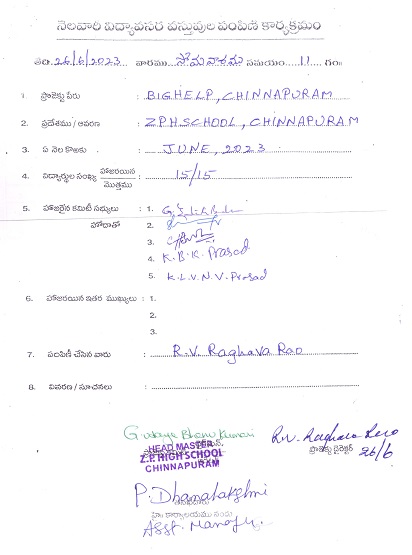 నెలవారి విద్యావసర వస్తువుల పంపిణి కార్యక్రమం
తేది: 26/6/2023 వారము సోమవారము సమయం 11 గం॥
1. ప్రాజెక్టు పేరు : BIGHELP, CHINNAPURAM
2. ప్రదేశము / ఆవరణ : ZPHSCHOOL, CHINNAPURAM
3. ఏ నెల కొఱకు : JUNE, 2023
4. విద్యార్థుల సంఖ్య హాజరయిన / మొత్తము : 15/15
5. హాజరైన కమిటీ సభ్యులు : 1.
హోదాతో 2.
3.
4. K.B.K. Prasad
5. K.L.V.N.V. Prasad
6. హాజరయిన ఇతర ముఖ్యులు : 1.
2.
3.
7. పంపిణీ చేసిన వారు : R.V. Raghava Rao
8. వివరణ / సూచనలు :
G. Udaya Bhanu Kumari R.V. Raghava Rao
HEAD MASTER ప్రాజెక్టు డైరెక్టర్ 26/6
Z.P. HIGH SCHOOL
CHINNAPURAM
P. Dhanalakshmi
Asst. Manager.